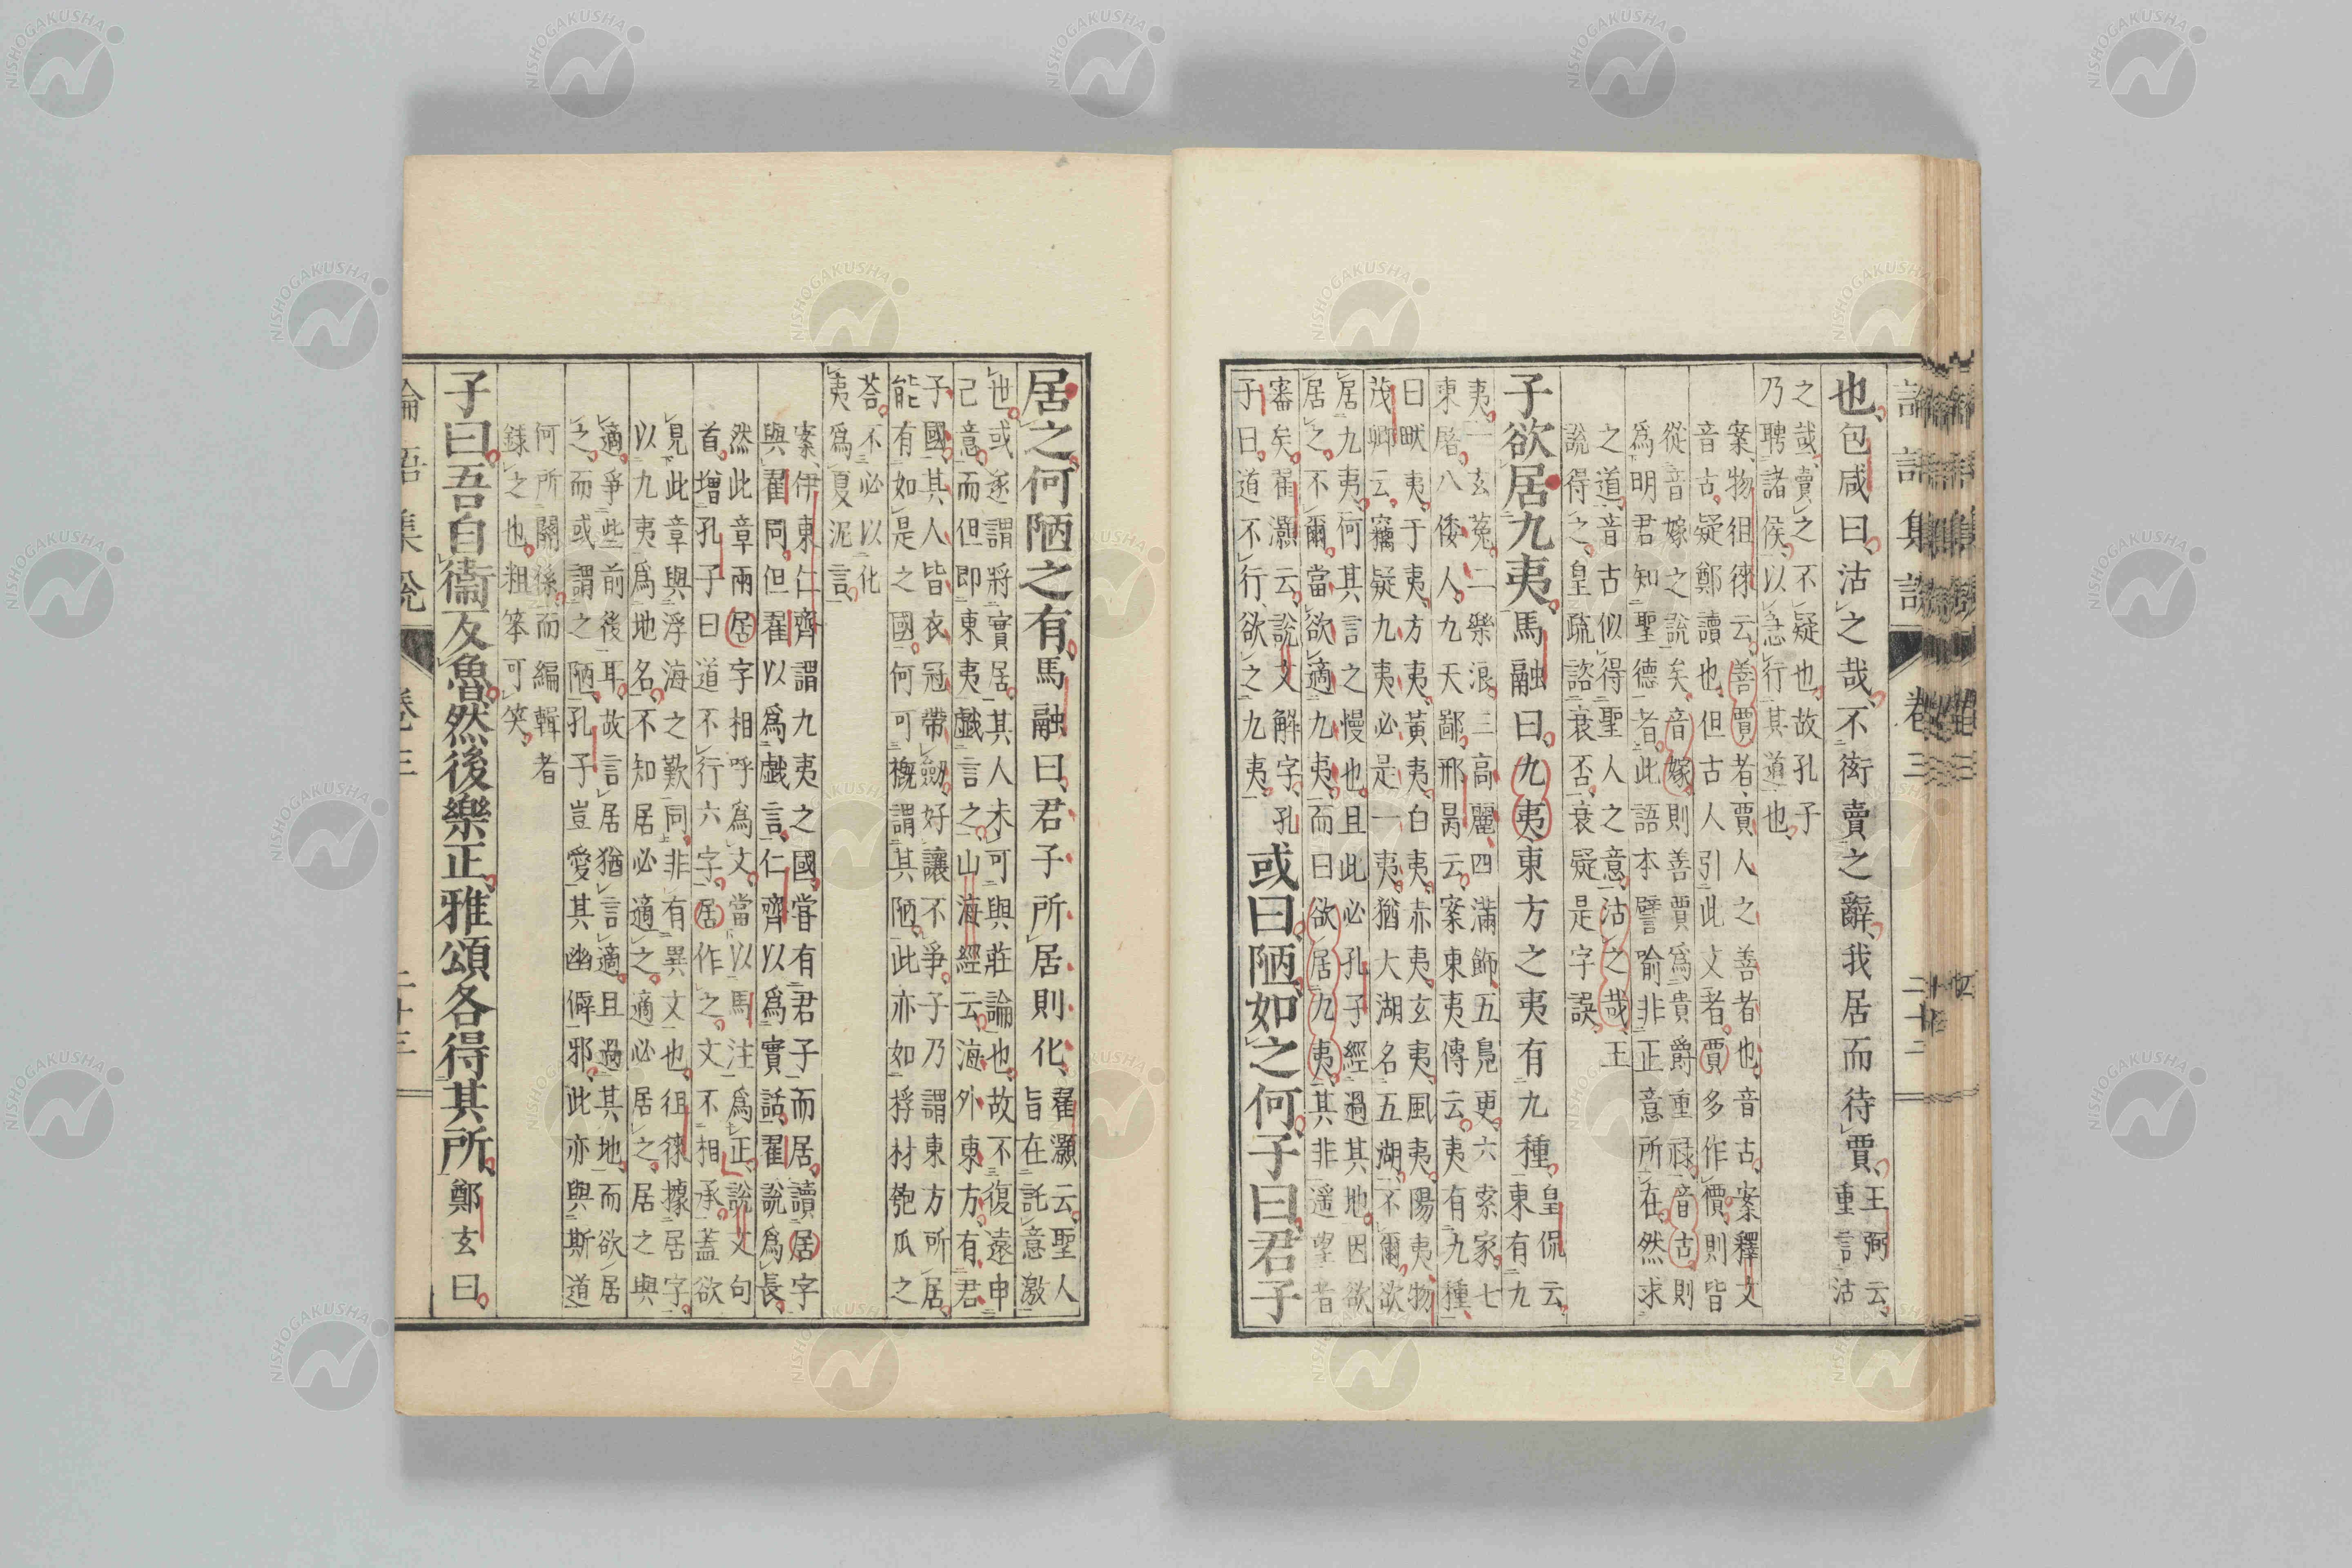 也包咸曰沽之哉不衒賣之辭我居而待賈王弼云重言沽
之哉賣之不疑也故孔子
乃聘諸侯以急行其道也
案物徂徠云善賈者賈人之善者也音古案釋文
音古疑鄭讀也但古人引此文者賈多作價則皆
從音嫁之說矣音嫁則善賈爲貴爵重祿音古則
爲明君知聖德者此語本譬喻非正意所在然求
之道音古似得聖人之意沽之哉王
說得之皇疏諮衰否衰疑是字誤
子欲居九夷馬融曰九夷東方之夷有九種皇侃云東有九
夷一玄菟二樂浪三高麗四滿飾五鳧更六索家七
東屠八倭人九天鄙邢昺云案東夷傳云夷有九種
曰畎夷于夷方夷黃夷白夷赤夷玄夷風夷陽夷物
茂卿云竊疑九夷必是一夷猶大湖名五湖不爾欲
居九夷何其言之慢也且此必孔子經過其地因欲
居之不爾當欲適九夷而曰欲居九夷其非遥望者
審矣翟灝云說文解字孔
子曰道不行欲之九夷
或曰陋如之何子曰君子
居之何陋之有馬融曰君子所居則化翟灝云聖人旨在託意激
世或遂謂將實居其人未可與莊論也故不復遠申
己意而但即東夷戲言之山海經云海外東方有君
子國其人皆衣冠帶劒好讓不爭子乃謂東方所居
能有如是之國何可概謂其陋此亦如桴材匏瓜之
荅不必以化
夷爲夏泥言
案伊東仁齊謂九夷之國甞有君子而居讀居字
與翟同但翟以爲戲言仁齊以爲實話翟說爲長
然此章兩居字相呼爲文當以馬注爲正說文句
首增孔子曰道不行六字居作之文不相承蓋欲
見此章與浮海之歎同非有異文也徂徠據居字
以九夷爲地名不知居必適之適必居之居之與
適爭些前後耳故言居猶言適且過其地而欲居
之而或謂之陋孔子豈愛其幽僻邪此亦與斯道
何所關係而編輯者
錄之也粗笨可笑
子曰吾自衞反魯然後樂正雅頌各得其所鄭玄曰
卷三
二十二